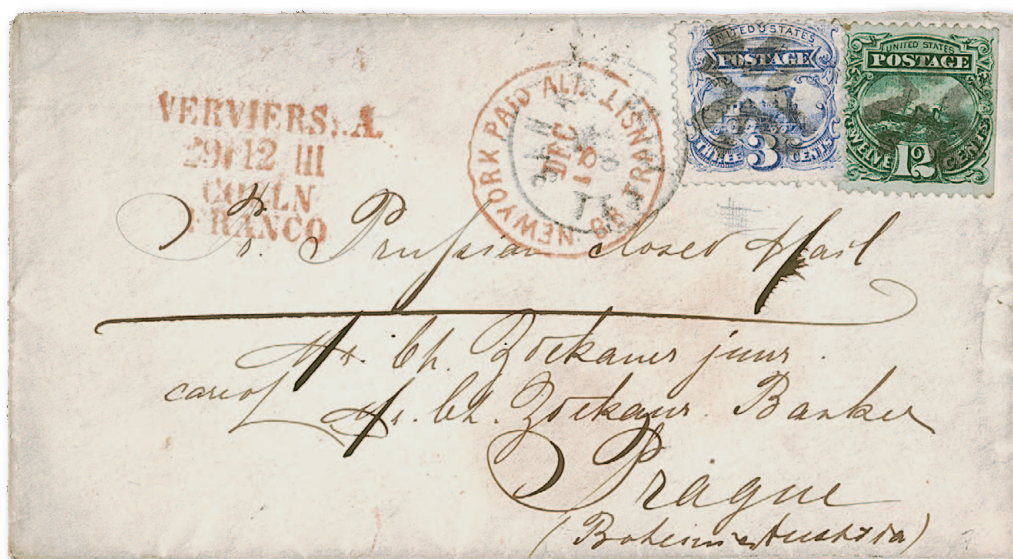 VERVIERS.A.
29 12 III
COELN
FRANCO
NEW YORK PAID ALL TRANSIT
DEC
18
UNITED STATES
POSTAGE
THREE 3 CENTS
UNITED STATES
POSTAGE
TWELVE 12 CENTS
Pr. Prussian closed Mail
Mr. Ch. Zdekauer junr.
care of Mr. Ch. Zdekaur. Banker
Prague
(Bohemia Austria)